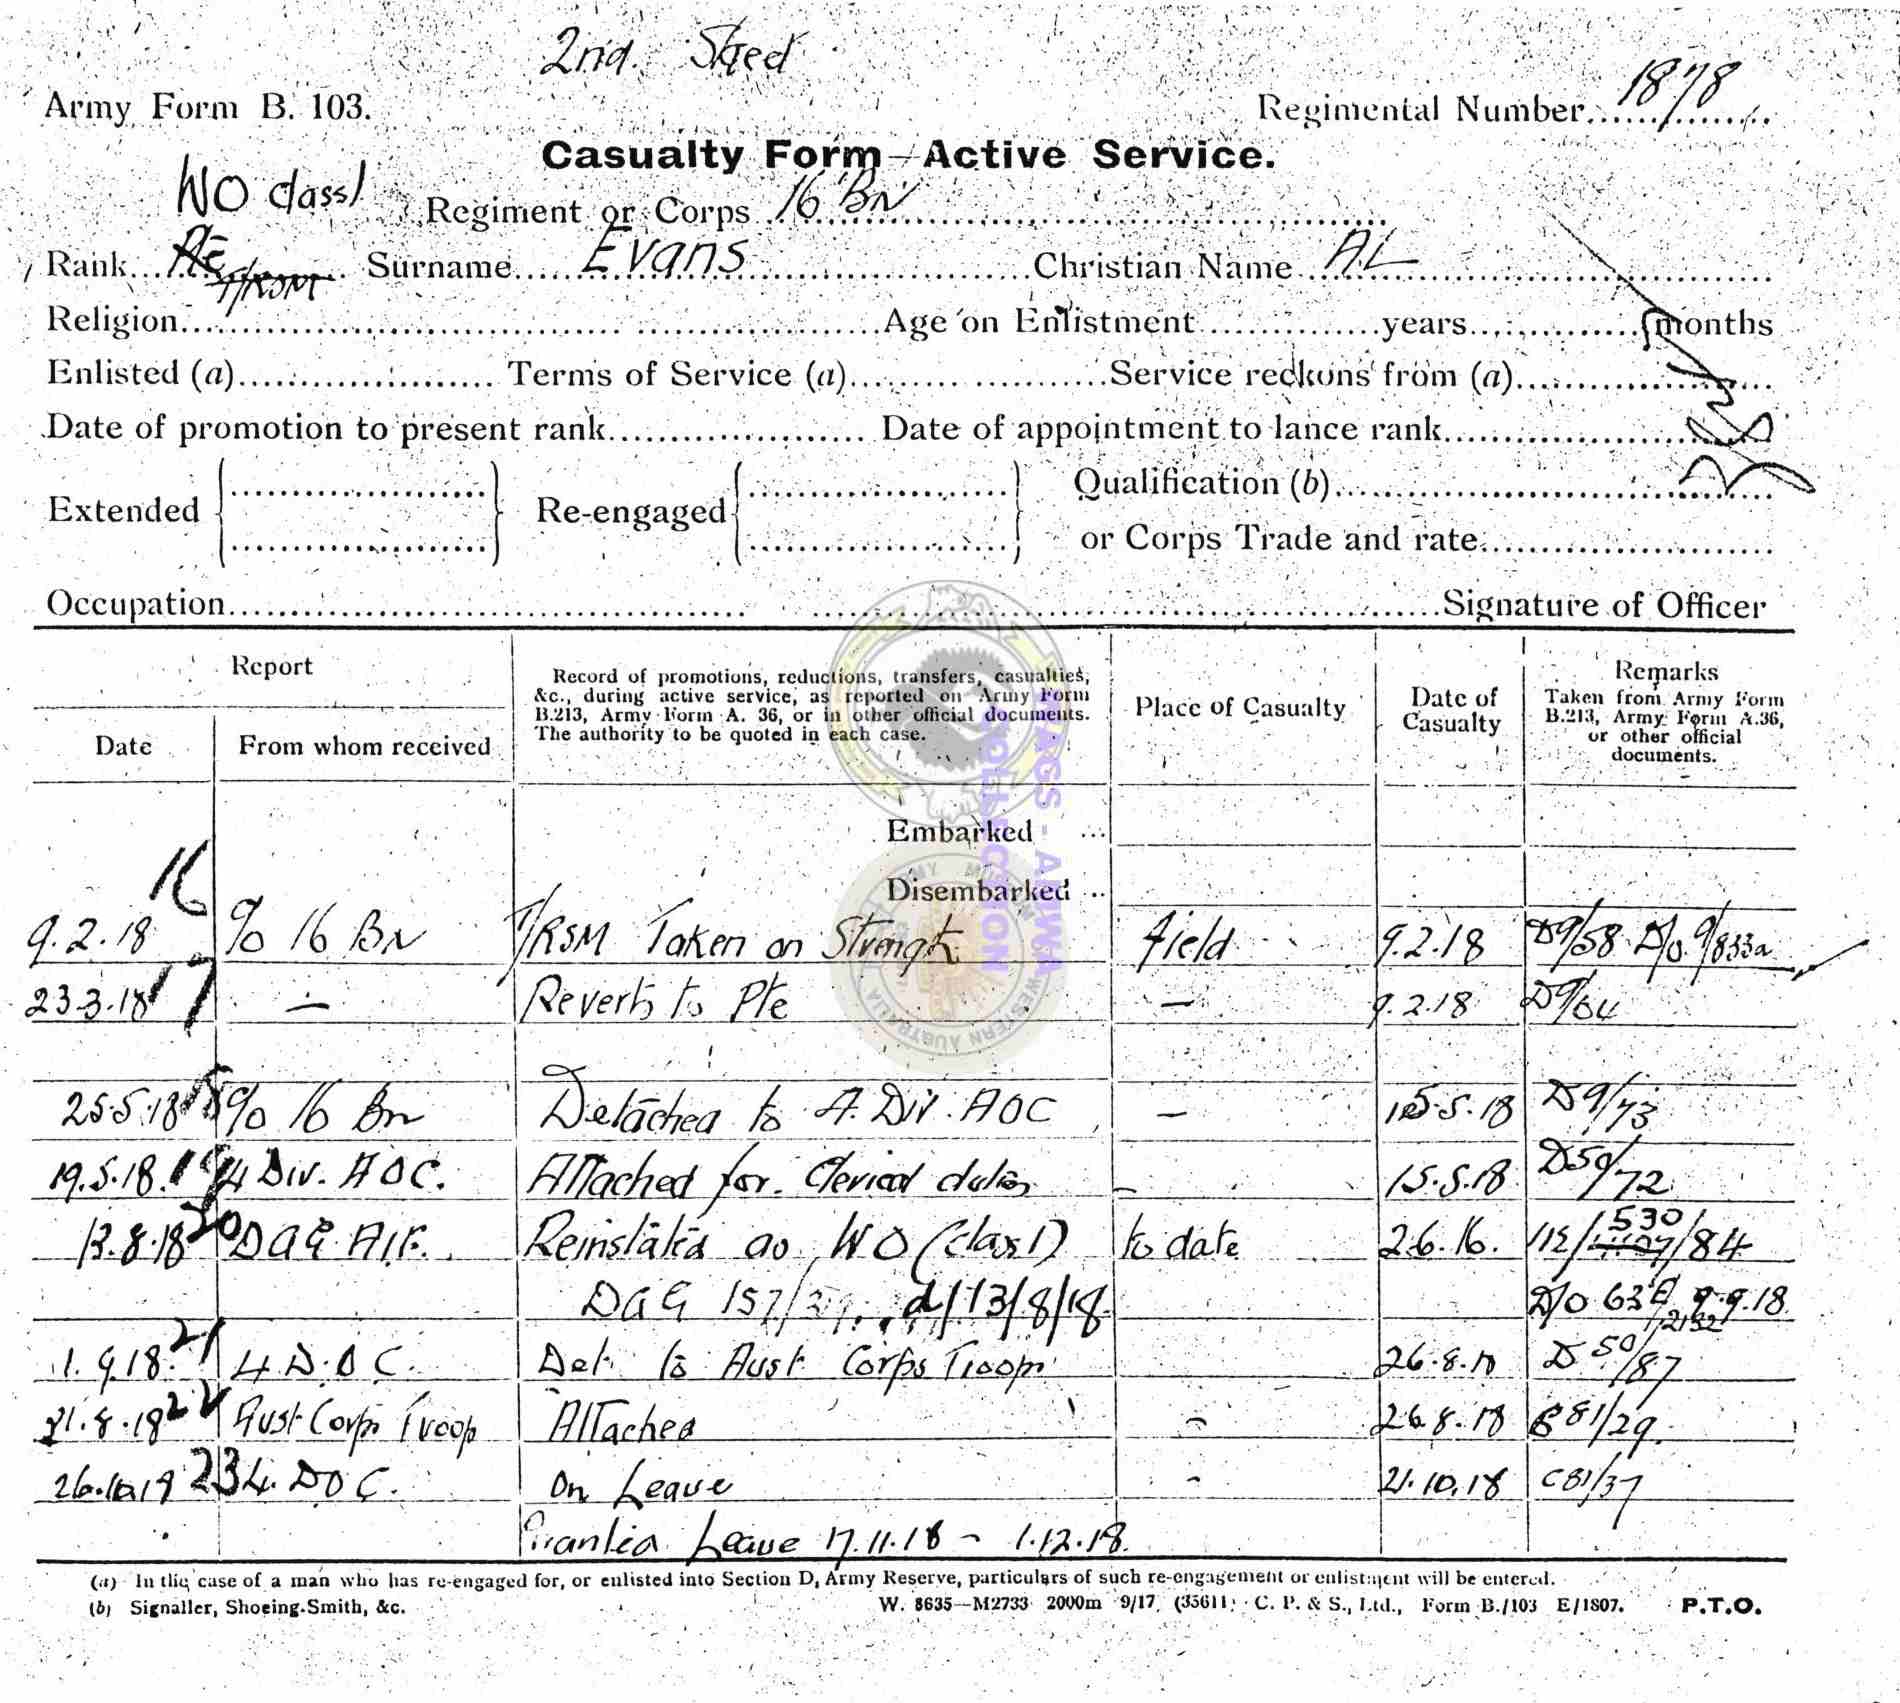 2nd. Sheet
Army Form B. 103.
Regimental Number 1878
Casualty Form—Active Service.
WO class 1
Regiment or Corps 16 BN
Rank Pte T/RSM Surname Evans Christian Name A.L
Religion Age on Enlistment years months
Enlisted (a) Terms of Service (a) Service reckons from (a)
Date of promotion to present rank Date of appointment to lance rank
Extended Re-engaged Qualification (b)
or Corps Trade and rate
Occupation Signature of Officer
Report
Date
From whom received
Record of promotions, reductions, transfers, casualties,
&c., during active service, as reported on Army Form
B.213, Army Form A. 36, or in other official documents.
The authority to be quoted in each case.
Place of Casualty
Date of
Casualty
Remarks
Taken from Army Form
B.213, Army Form A.36,
or other official
documents.
Embarked ...
Disembarked ...
16
9.2.18 % 16 BN T/RSM Taken on Strength field 9.2.18 D9/58 D/o 9/833a
23.3.18 17 — Reverts to Pte — 9.2.18 D9/64
25.5.18 18 % 16 Bn Detached to 4 Div. AOC — 15.5.18 D9/73
19.5.18. 19 4 Div. AOC. Attached for Clerical duties — 15.5.18 D50/72
13.8.18 20 DAG. AIF. Reinstated as WO (class 1) to date 26.16. 112/530/84
DAG 157/ d/13/8/18 D/O 63 9.9.18
1.9.18. 21 4 D.O C. Det to Aust Corps Troops 26.8.18 D 50/87
31.8.18 22 Aust Corps Troops Attached - 26.8.18 B81/29.
26.10.18 23 4. DOC. On Leave - 21.10.18 C81/37
Granted Leave 17.11.18 - 1.12.18.
(a) In the case of a man who has re-engaged for, or enlisted into Section D, Army Reserve, particulars of such re-engagement or enlistment will be entered.
(b) Signaller, Shoeing-Smith, &c.
W. 8635—M2733 2000m 9/17 (35611) C. P. & S., Ltd., Form B./103 E/1807. P.T.O.
RAGS - AMWA
COLLECTION
ARMY MUSEUM WESTERN AUSTRALIA